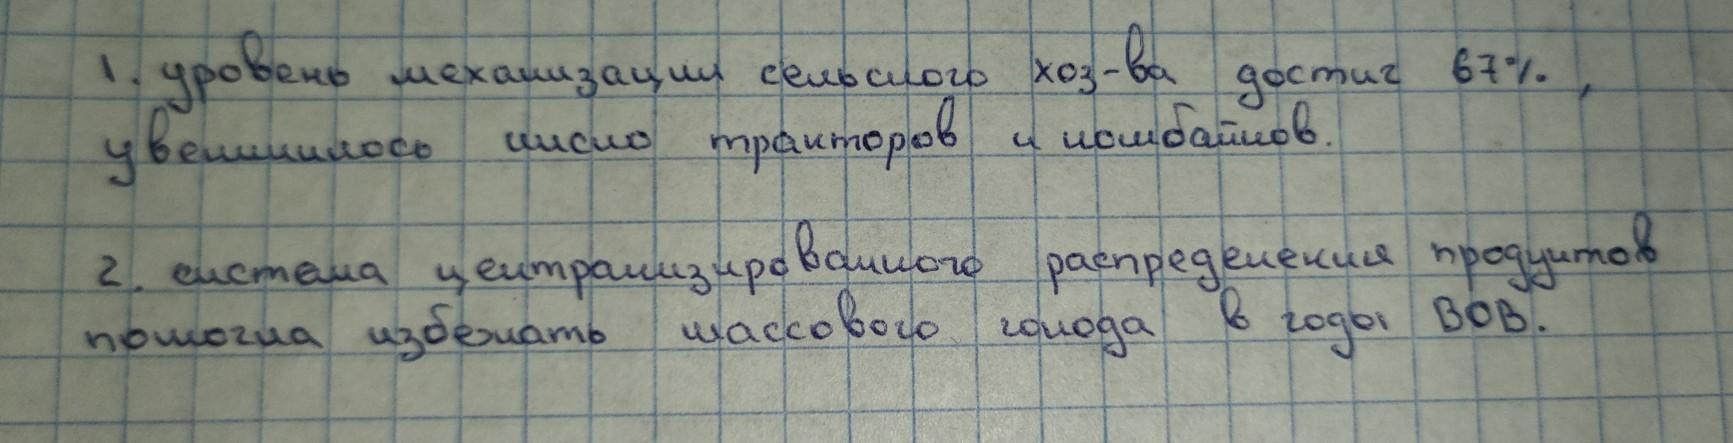 1. уровень механизации сельского хоз-ва достиг 67%,
увеличилось число тракторов и комбайнов.
2. система централизированного распределения продуктов
помогла избежать массового голода в годы ВОВ.